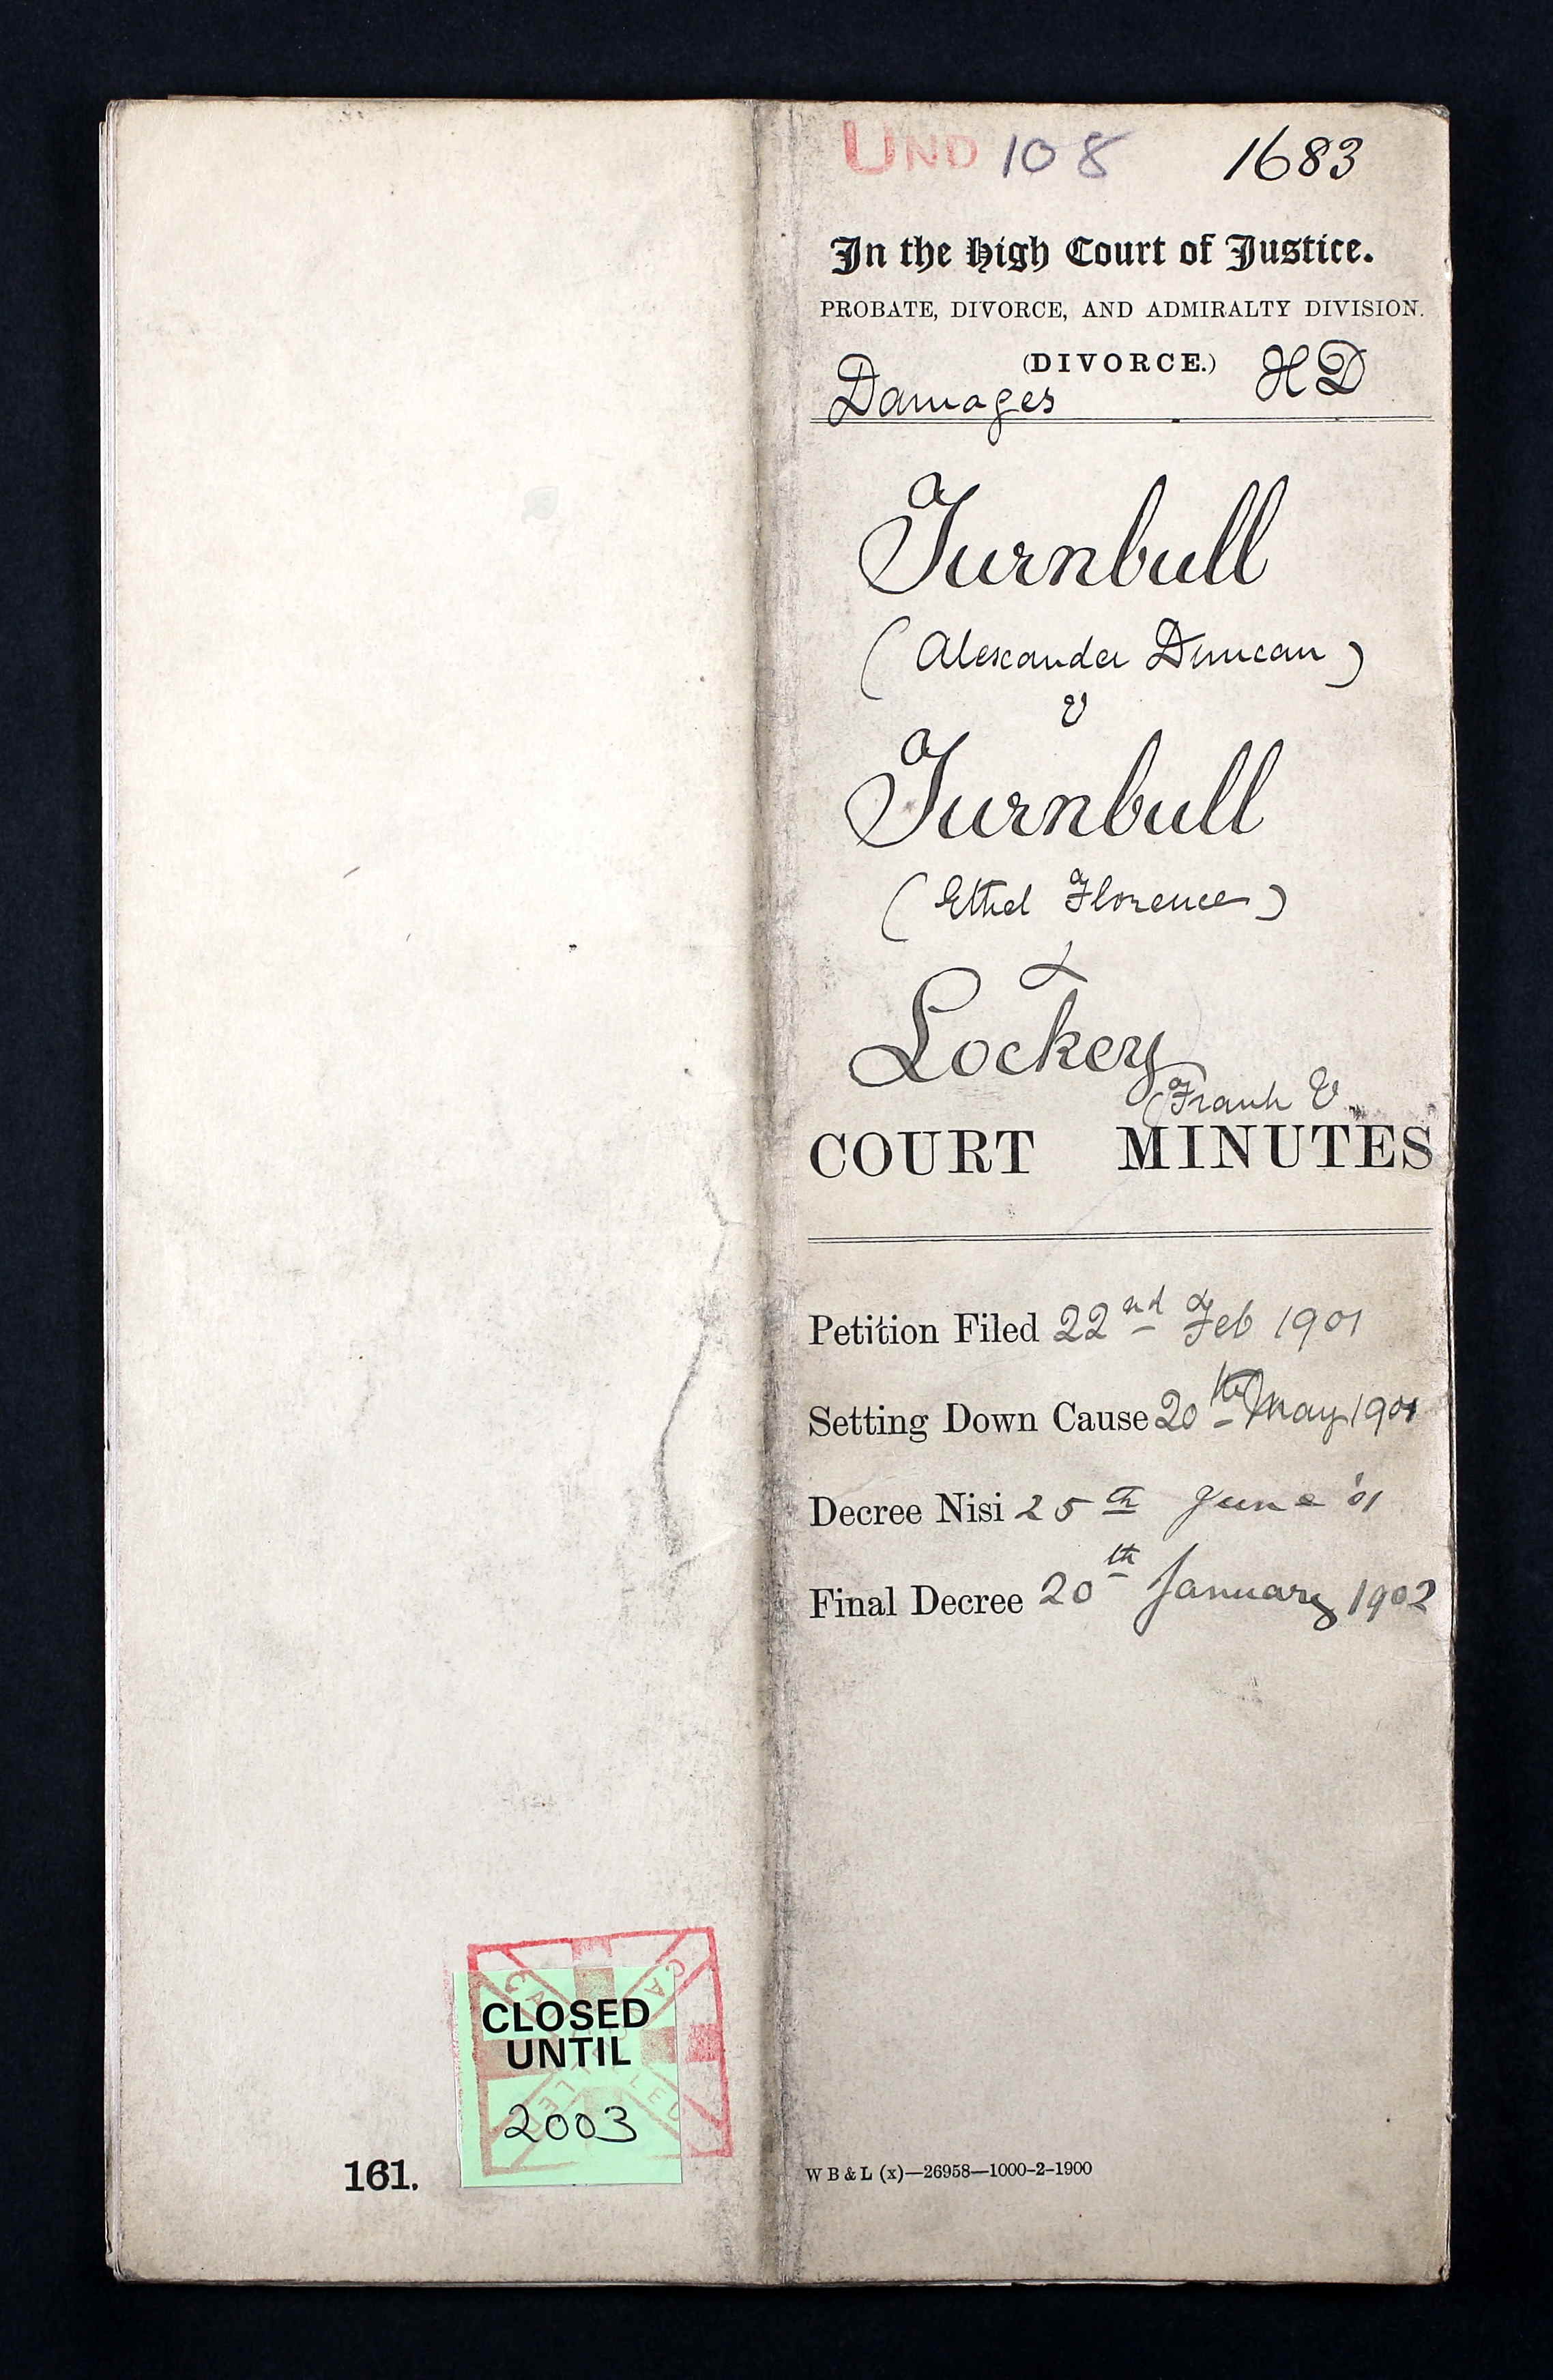 UND 108 1683
In the High Court of Justice.
PROBATE, DIVORCE, AND ADMIRALTY DIVISION.
(DIVORCE.) HD
Damages
Turnbull
(Alexander Duncan)
v
Turnbull
(Ethel Florence)
&
Lockey
(Frank V.
COURT MINUTES
Petition Filed 22nd Feb 1901
Setting Down Cause 20th May 1901
Decree Nisi 25th June '01
Final Decree 20th January 1902
W B & L (x)—26958—1000-2-1900
CANCELLED
CLOSED
UNTIL
2003
161.